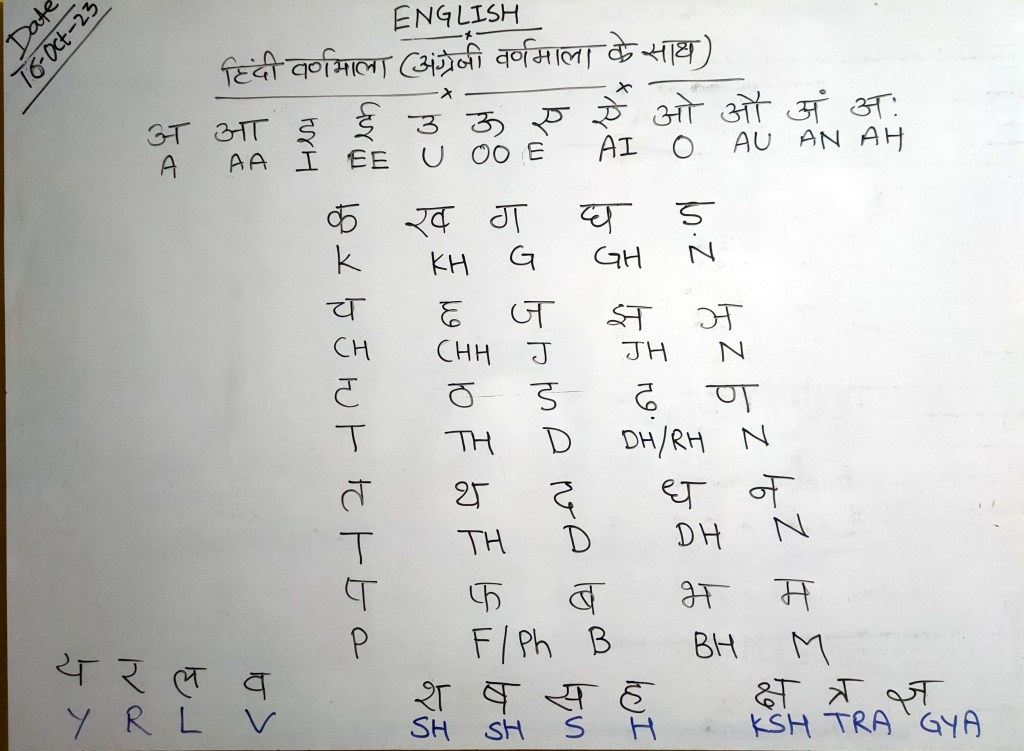 Date
16-Oct-23
ENGLISH
हिंदी वर्णमाला (अंग्रेजी वर्णमाला के साथ)
अ आ इ ई उ ऊ ए ऐ ओ औ अं अः
A AA I EE U OO E AI O AU AN AH
क ख ग घ ड़
K KH G GH N
च छ ज झ ञ
CH CHH J JH N
ट ठ ड ढ़ ण
T TH D DH/RH N
त थ द ध न
T TH D DH N
प फ ब भ म
P F/Ph B BH M
य र ल व श ष स ह क्ष त्र ज्ञ
Y R L V SH SH S H KSH TRA GYA